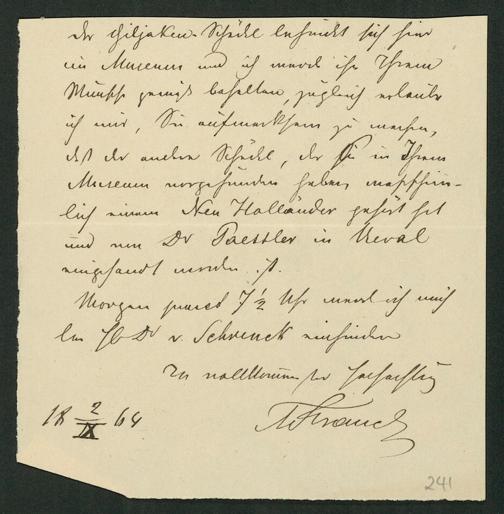 Der Giljaken-Schädel befindet sich hier
im Museum und ich werde ihn Ihrem
Wunsche gemäß behalten, zugleich erlaube
ich mir, Sie aufmerksam zu machen,
daß der andere Schädel, der Sie in Ihrem
Museum vorgefunden haben, wahrschein-
lich einem Neu Holländer gehört hat
und von Dr Paessler in Reval
eingesandt worden ist.
Morgen 7 1/2 Uhr werde ich mich
bei Dr v. Schrenck einfinden
In vollkommenster Hochachtung
18 2/IX 64
241